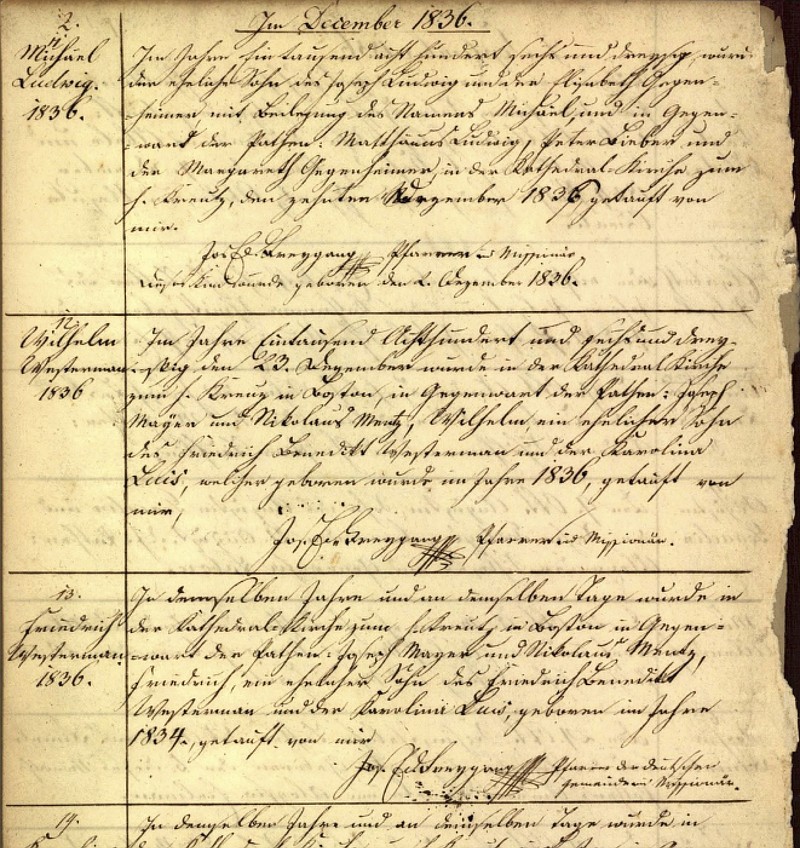 2.
Im December 1836.
11
Michäel
Ludwig.
1836.
Im Jahre Eintausend acht hundert sechs und dreysig, wurde
der eheliche Sohn des Joseph Ludwig und der Elisabeth Gegen=
=heimer mit Beilegung des Namens Michäel, und in Gegen=
=wart der Pathen: Matthäus Ludwig, Peter Bieber und
der Margareth Gegenheimer, in der Kathedral-Kirche zum
h. Kreutz, den zehnten Dezember 1836, getauft von
mir.
Jos. Ed. Freygang Pfarrer u. Missionär
dieses Kind wurde geboren den 2. Dezember 1836.
12.
Wilhelm
Westerman
1836
Im Jahre Eintausend Achthundert und sechs und drey-
-ßig den 23. Dezember wurde in der Kathedral Kirche
zum h. Kreuz in Boston, in Gegenwart der Pathen: Joseph
Mayer und Nikolaus Mentz, Wilhelm, ein ehelicher Sohn
des Friedrich Benedikt Westerman und der Karolina
Luis, welcher geboren wurde im Jahre 1836, getauft von
mir,
Jos. Ed. Freygang Pfarrer u. Missionär.
13.
Friedrich
Westerman.
1836.
In demselben Jahre und an demselben Tage wurde in
der Kathedral-Kirche zum h. Kreutz in Boston in Gegen=
=wart der Pathen: Joseph Mayer und Nikolaus Mentz,
Friedrich, ein ehelicher Sohn des Friedrich Benedikt
Westerman und der Karolina Luis, geboren im Jahre
1834., getauft von mir
Jos. Ed. Freygang Pfarrer der deutschen
Gemeinde u. Missionär.
In demselben Jahre und an demselben Tage wurde in